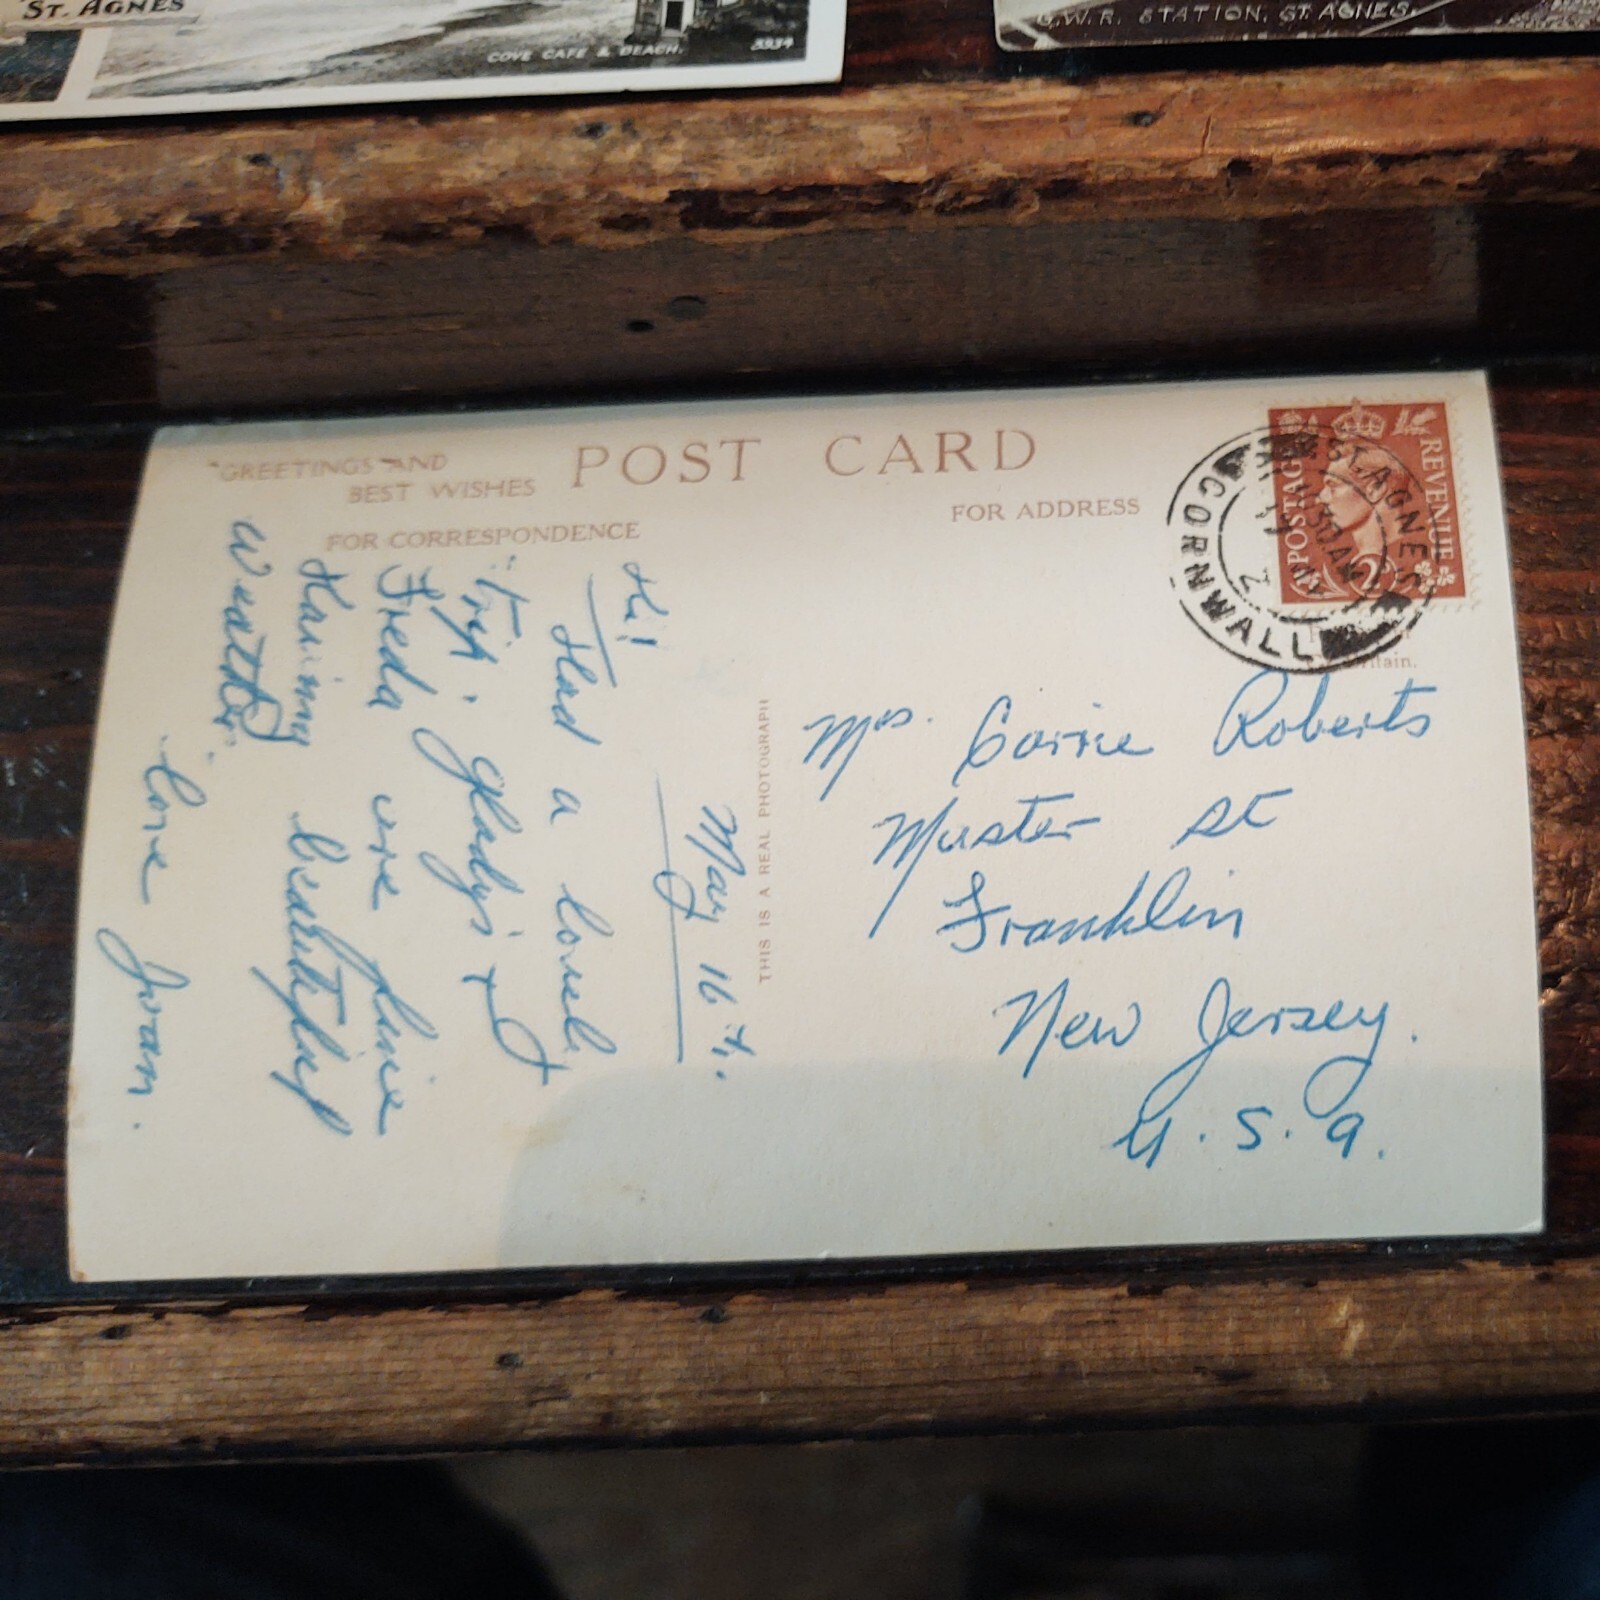 ST. AGNES
COVE CAFE & BEACH. 3934
G.W.R. STATION, ST AGNES.
"GREETINGS AND
BEST WISHES
POST CARD
FOR CORRESPONDENCE
FOR ADDRESS
POSTAGE REVENUE
ST. AGNES
CORNWALL
THIS IS A REAL PHOTOGRAPH
May 16th.
Hi!
Had a lovely
trip. Gladys &
Freda are fine
Having beautiful
weather.
love Joan.
Mrs. Carrie Roberts
Muster St
Franklin
New Jersey.
U.S.A.